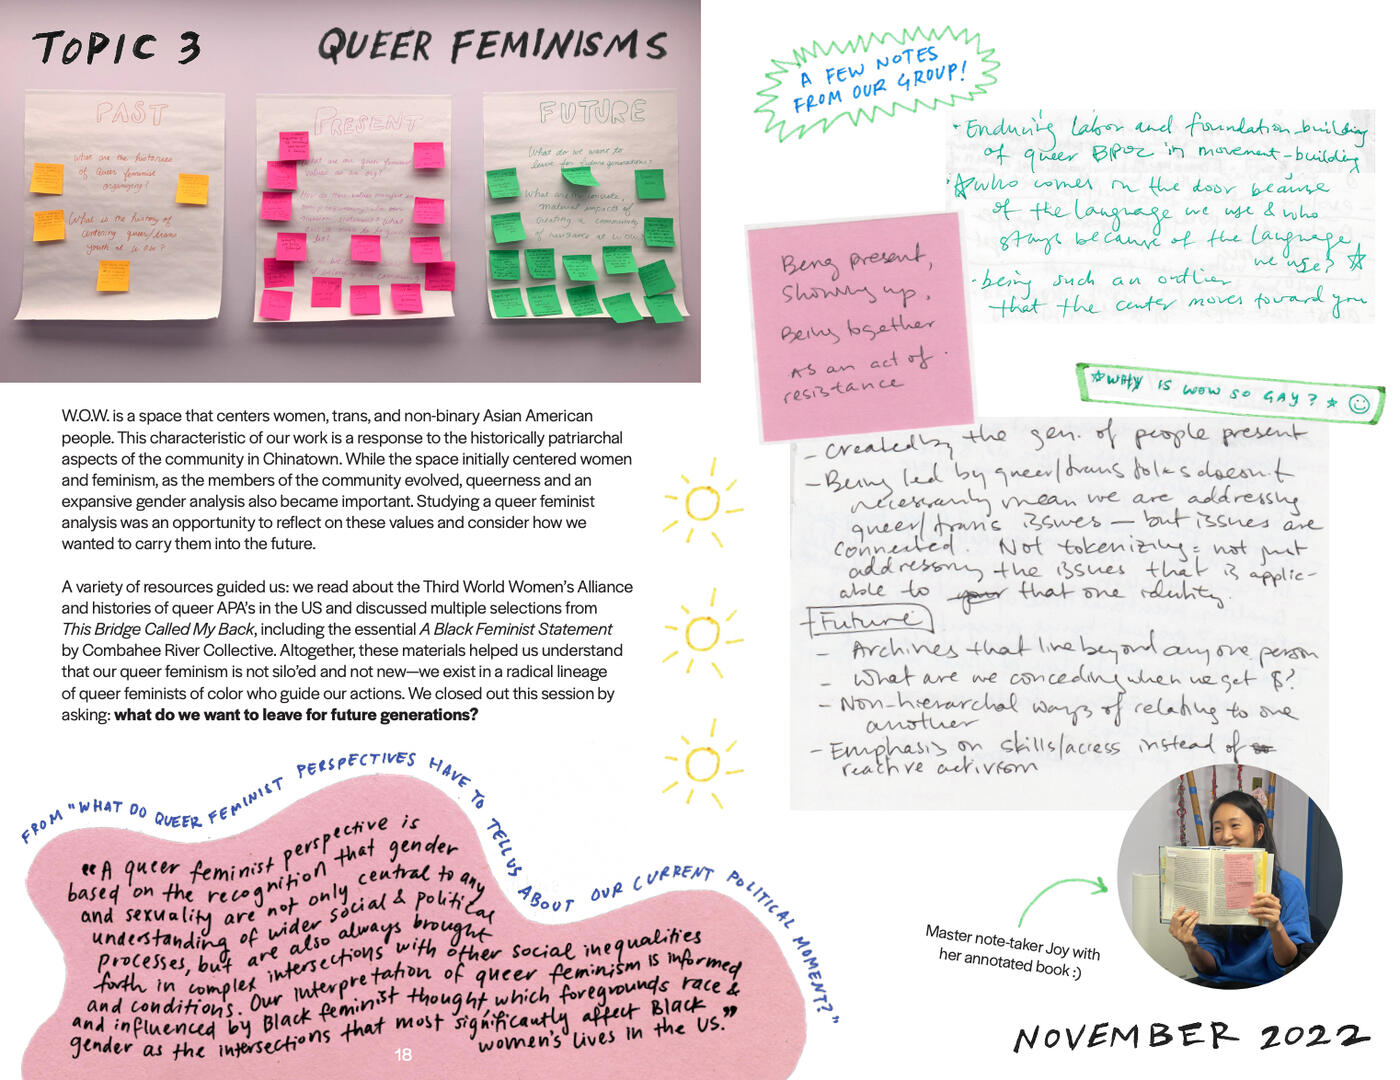 TOPIC 3
QUEER FEMINISMS
PAST
What are the histories
of queer feminist
organizing?
What is the history of
centering queer/trans
youth at W.O.W.?
PRESENT
What are our queer feminist
values as an org?
FUTURE
What do we want to
leave for future generations?
What are the concrete,
material impacts of
creating a community
of nuisance at WOW?
W.O.W. is a space that centers women, trans, and non-binary Asian American
people. This characteristic of our work is a response to the historically patriarchal
aspects of the community in Chinatown. While the space initially centered women
and feminism, as the members of the community evolved, queerness and an
expansive gender analysis also became important. Studying a queer feminist
analysis was an opportunity to reflect on these values and consider how we
wanted to carry them into the future.
A variety of resources guided us: we read about the Third World Women's Alliance
and histories of queer APA's in the US and discussed multiple selections from
This Bridge Called My Back, including the essential A Black Feminist Statement
by Combahee River Collective. Altogether, these materials helped us understand
that our queer feminism is not silo'ed and not new—we exist in a radical lineage
of queer feminists of color who guide our actions. We closed out this session by
asking: what do we want to leave for future generations?
FROM "WHAT DO QUEER FEMINIST PERSPECTIVES HAVE TO TELL US ABOUT OUR CURRENT POLITICAL MOMENT?"
"A queer feminist perspective is
based on the recognition that gender
and sexuality are not only central to any
understanding of wider social & political
processes, but are also always brought
forth in complex intersections with other social inequalities
and conditions. Our interpretation of queer feminism is informed
and influenced by Black feminist thought which foregrounds race &
gender as the intersections that most significantly affect Black
women's lives in the US."
18
A FEW NOTES
FROM OUR GROUP!
· Enduring labor and foundation-building
of queer BPOC in movement-building
· ☆ who comes in the door because
of the language we use & who
stays because of the language
we use? ☆
· being such an outlier
that the center moves toward you
Being present,
Showing up,
Being together
As an act of
resistance
☆ WHY IS WOW SO GAY? ☆ ☺
- Created by the gen. of people present
- Being led by queer/trans folks doesn't
necessarily mean we are addressing
queer/trans issues — but issues are
connected. Not tokenizing = not just
addressing the issues that is applic-
able to your that one identity.
+ Future
- Archives that live beyond any one person
- What are we conceding when we get $?
- Non-hierarchal ways of relating to one
another
- Emphasis on skills/access instead of
reactive activism
Master note-taker Joy with
her annotated book :)
NOVEMBER 2022